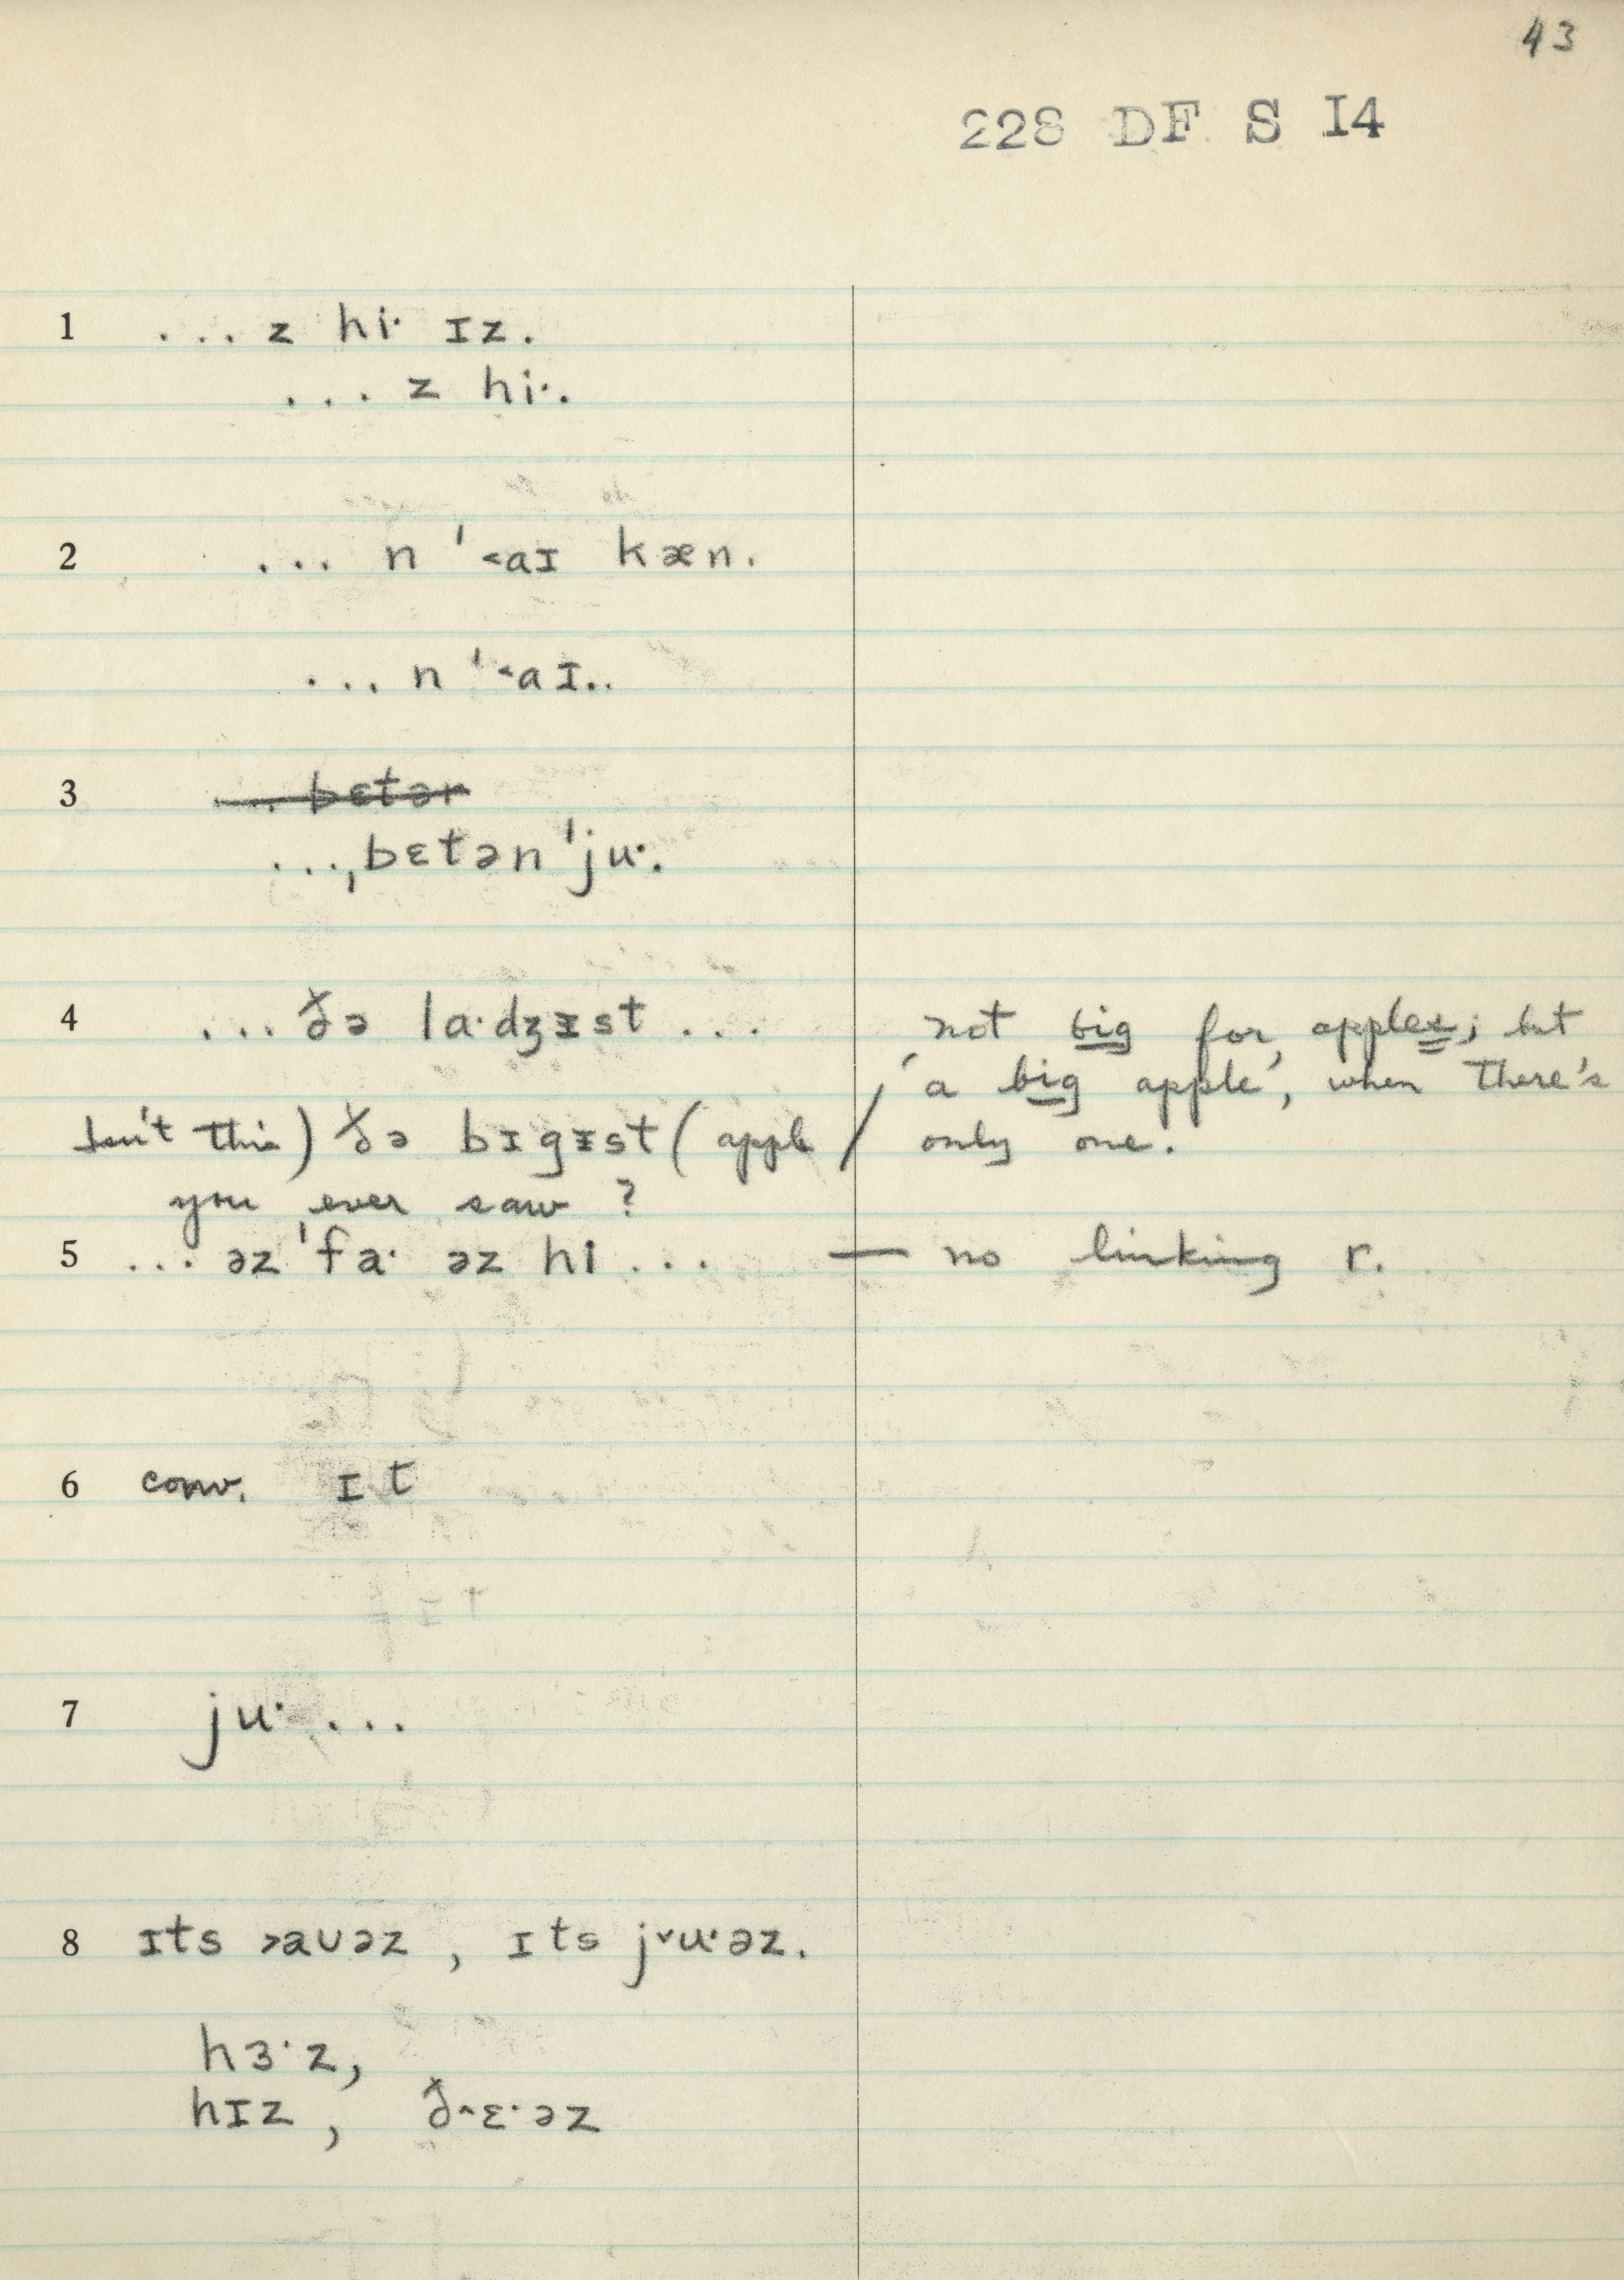 43
228 DF S I4
1 ... z hiˑ ɪz.
... z hiˑ.
2 ... n ˈ˂aɪ kæn.
... n ˈ˂aɪ..
3 ... bɛtər
...ˌbɛtən ˈjuˑ.
4 ... ðə laˑdʒɪst ...
not big for apples; but
'a big apple', when there's
Isn't this) ðə bɪgɪst (apple / only one.
you ever saw ?
5 ... əz ˈfaˑ əz hi ... — no linking r.
6 conv. ɪt
7 juˑ ...
8 ɪts ˃aʊəz , ɪts j˅uˑəz.
hɜˑz,
hɪz , ð˄ɛˑəz